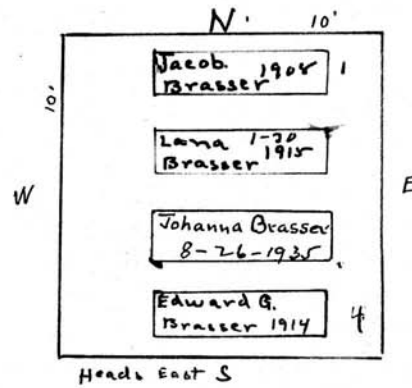 N. 10'
10'
Jacob. 1908 1
Brasser
Lana 1-30
Brasser 1915
W E
Johanna Brasser
8-26-1935
Edward G.
Brasser 1914 4
Heads East S